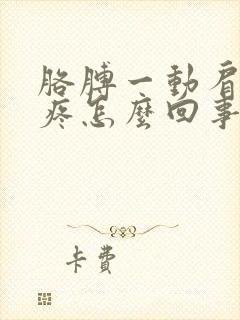 胳膊一動肩
疼怎麼回事
卡費